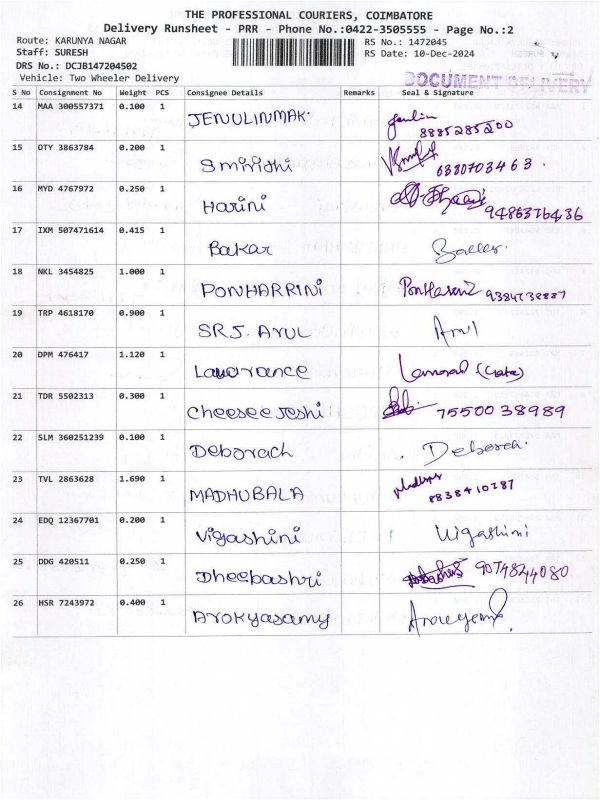 THE PROFESSIONAL COURIERS, COIMBATORE
Delivery Runsheet - PRR - Phone No.:0422-3505555 - Page No.:2
Route: KARUNYA NAGAR RS No.: 1472045
Staff: SURESH RS Date: 10-Dec-2024
DRS No.: DCJB147204502
Vehicle: Two Wheeler Delivery DOCUMENT DELIVERY
S No Consignment No Weight PCS Consignee Details Remarks Seal & Signature
14 MAA 300557371 0.100 1 JENULINMAK 8885285200
15 OTY 3863784 0.200 1 Smirithi 6380703463
16 MYD 4767972 0.250 1 Harini 9486376436
17 IXM 507471614 0.415 1 Bakar
18 NKL 3454825 1.000 1 PONHARRINI
19 TRP 4618170 0.900 1 SRJ. ARUL Arul
20 DPM 476417 1.120 1 Lawrance
21 TDR 5502313 0.300 1 Cheesee Jeshi 7550038989
22 SLM 360251239 0.100 1 Deborach Deborah
23 TVL 2863628 1.690 1 MADHUBALA 8838410787
24 EDQ 12367701 0.200 1 Vigashini Vigashini
25 DDG 420511 0.250 1 Dheebashri 9074844080
26 HSR 7243972 0.400 1 Arokyasamy